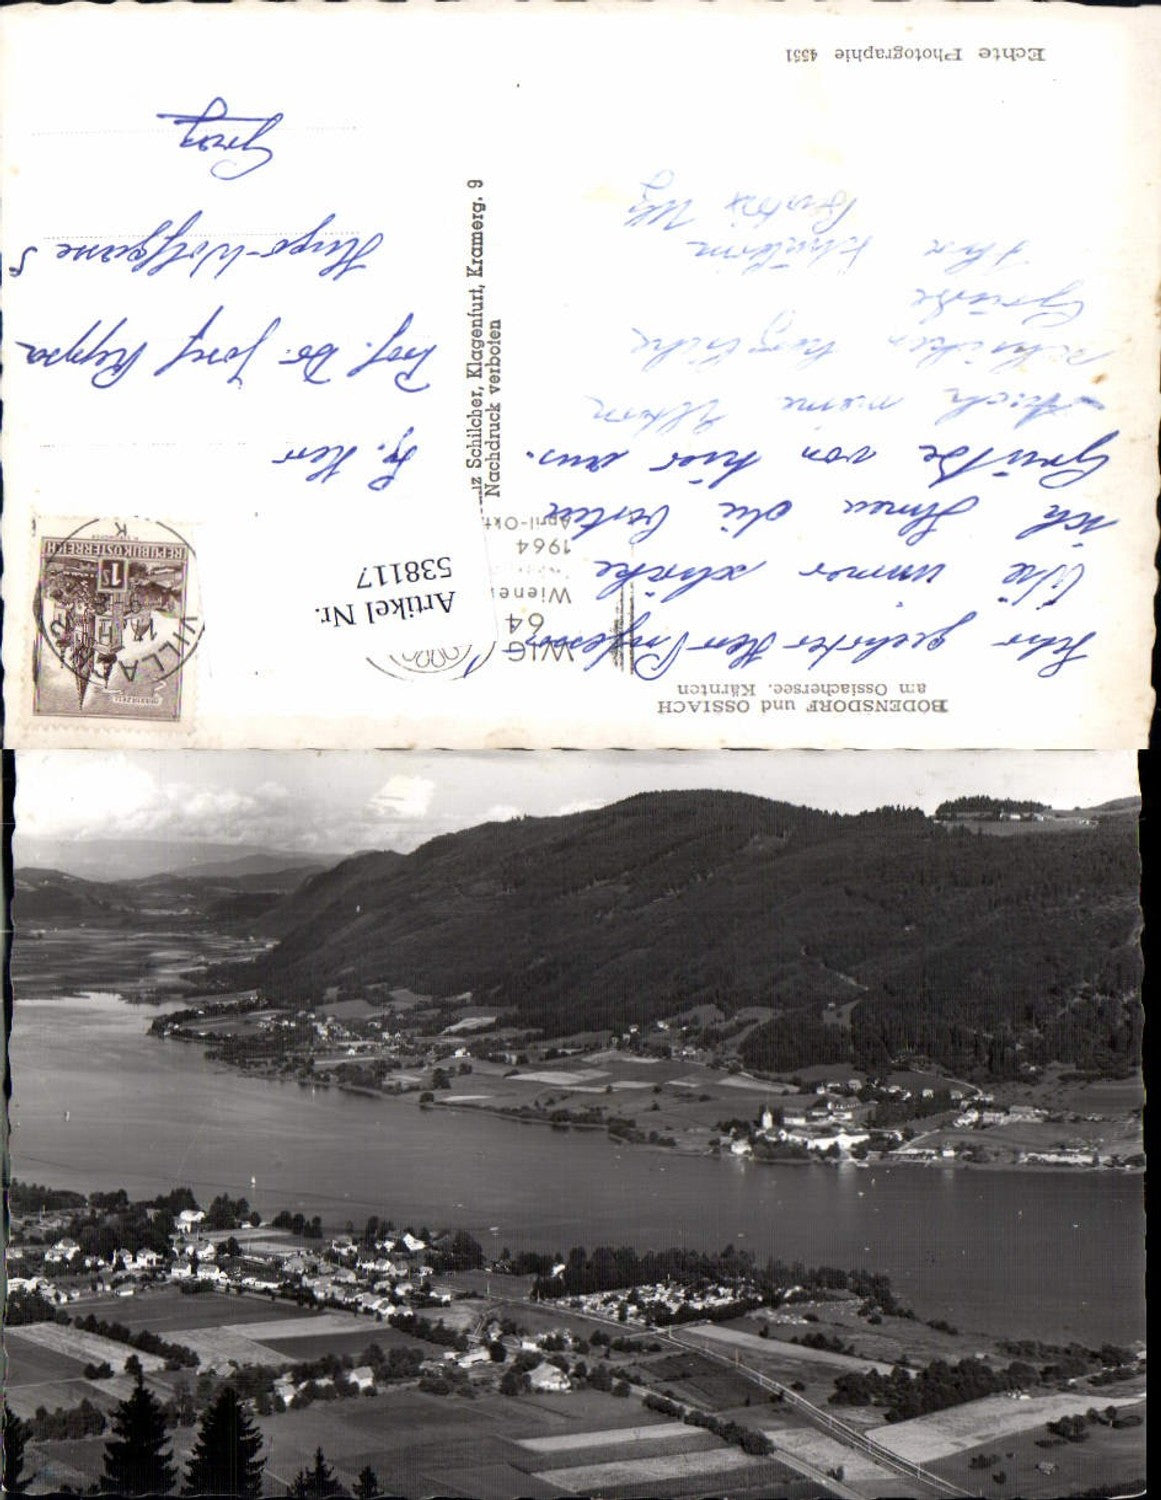 BODENSDORF und OSSIACH
am Ossiachersee, Kärnten
Sehr geehrter Herr Professor!
Wie immer schicke
ich Ihnen die besten
Grüße von hier aus.
Auch meine Eltern
schicken herzliche
Grüße
Ihre Schülerin
Echte Photographie 4551
Schilcher, Klagenfurt, Kramerg. 9
Nachdruck verboten
WIG
64
Wiener
1964
April-Okt
Artikel Nr.
538117
VILLACH
REPUBLIK ÖSTERREICH
1S
Herr
Prof. Dr. Josef
Hugo-Wolfgasse 5
Graz